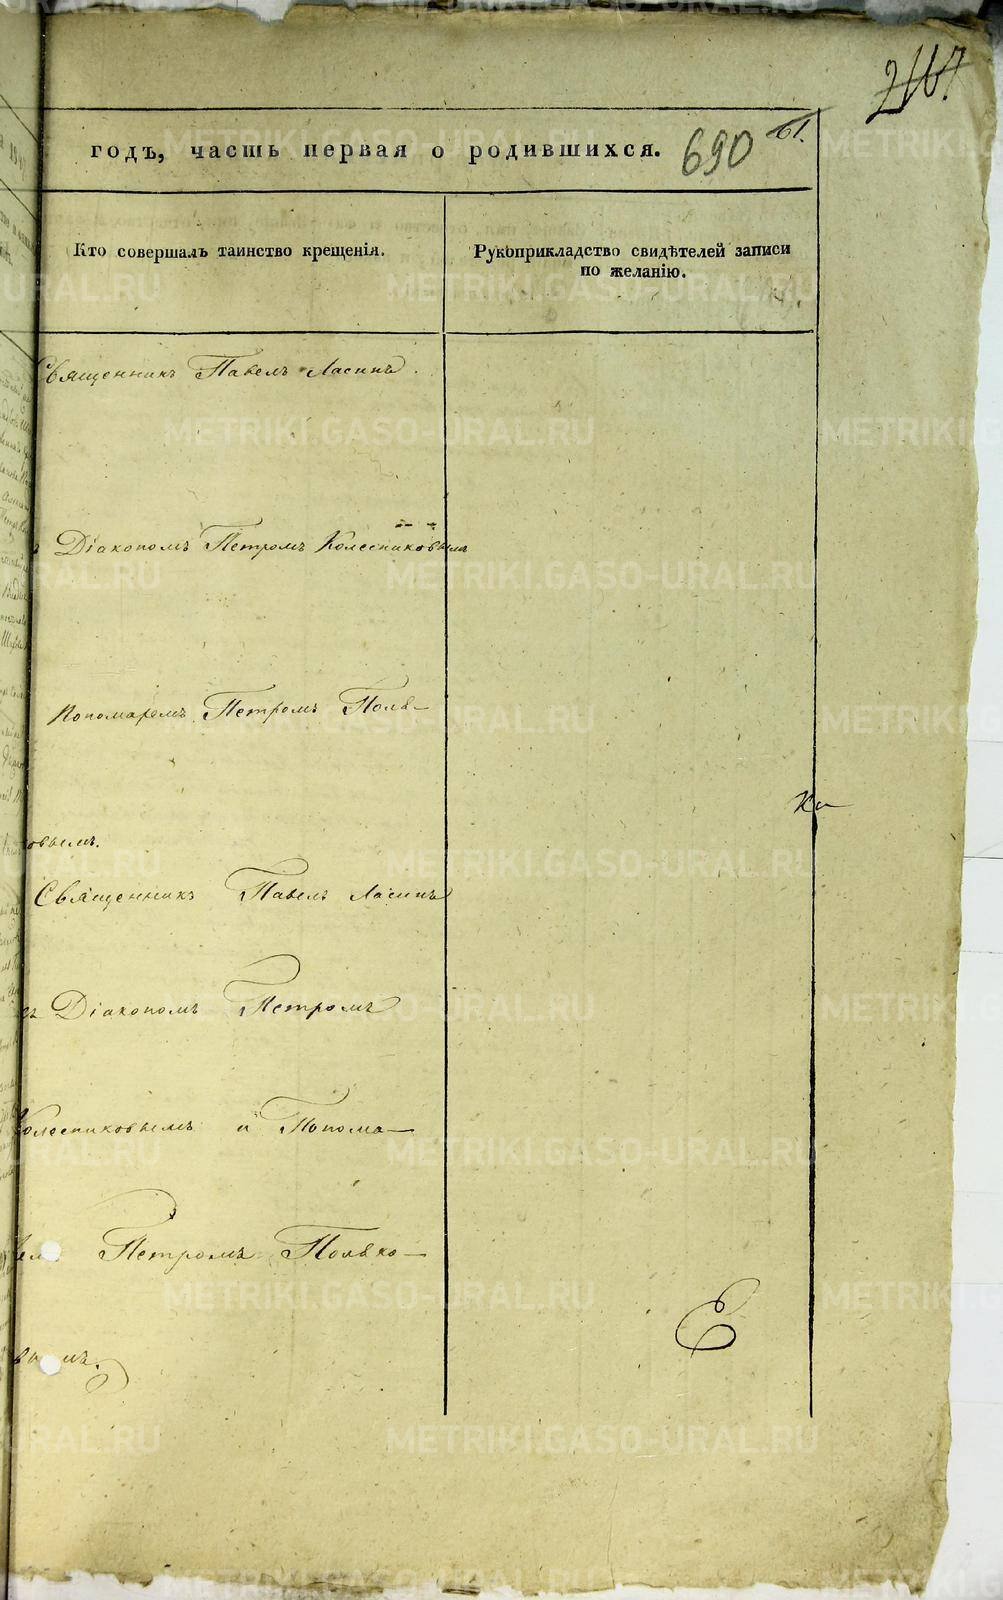 годъ, часть первая о родившихся. 690 61.
Кто совершалъ таинство крещенія.
Рукоприкладство свидѣтелей записи
по желанію.
Священникъ Павелъ Ласинъ.
Діакономъ Петромъ Колесниковымъ
Пономаремъ Петромъ Поля-
ковымъ.
Священникъ Павелъ Ласинъ
съ Діакономъ Петромъ
Колесниковымъ и Понома-
Петромъ Поляко-
вымъ.
METRIKI.GASO-URAL.RU